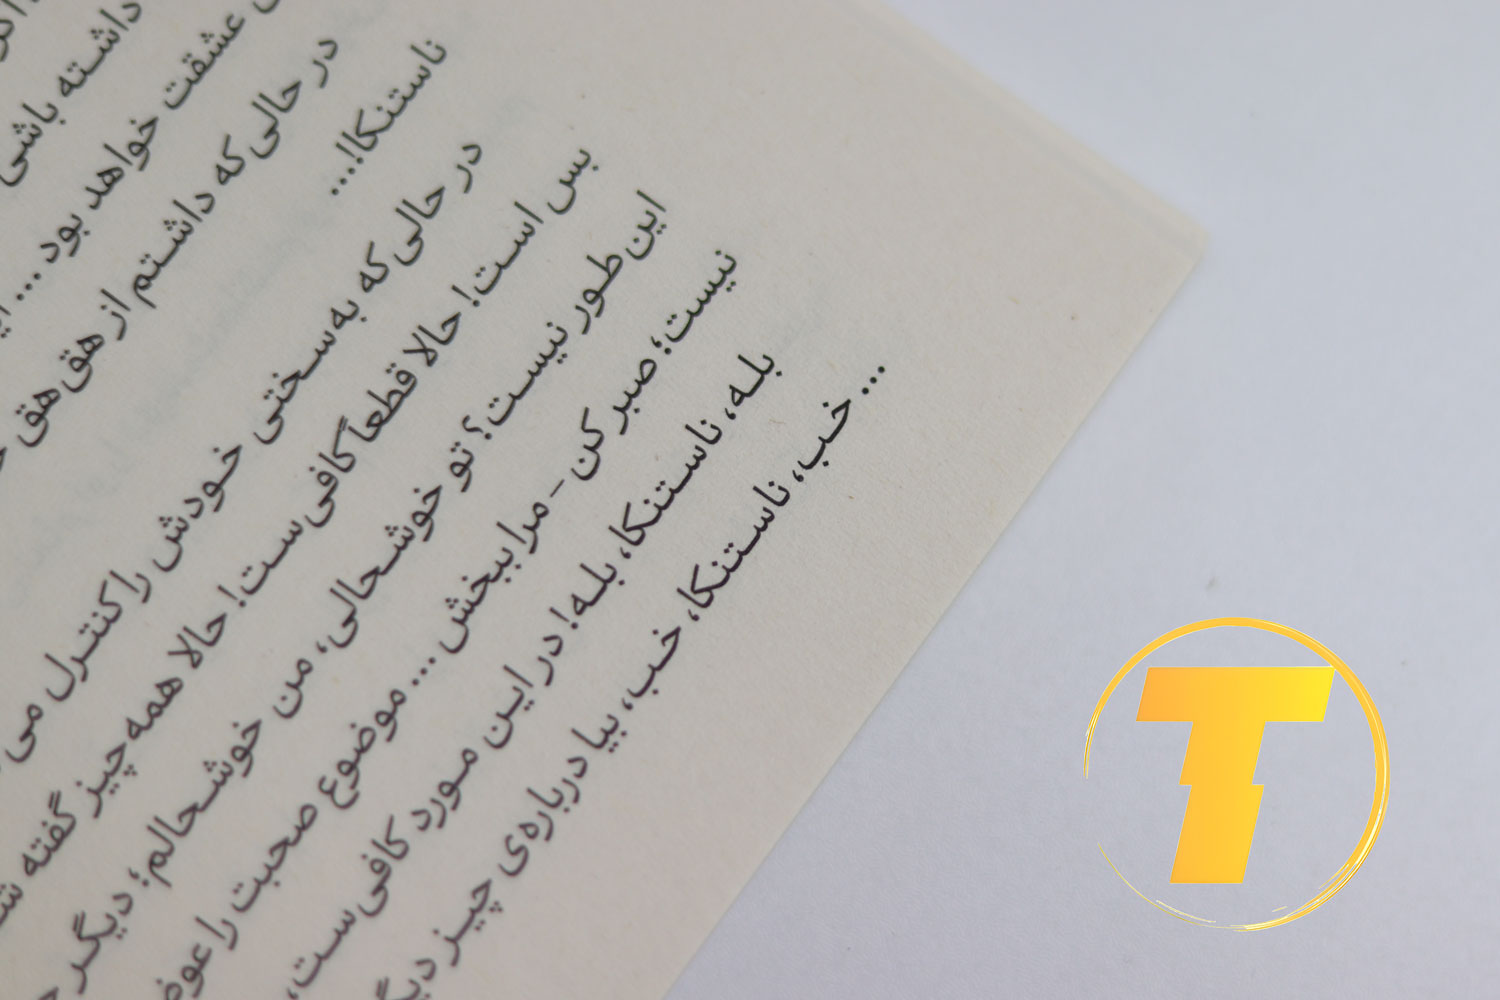 داشته باشی
عشقت خواهد بود ...
در حالی که داشتم از هق هق
ناستنکا!...
در حالی که به سختی خودش را کنترل می
بس است! حالا قطعاً کافی ست! حالا همه چیز گفته
این طور نیست؟ تو خوشحالی، من خوشحالم؛ دیگر
نیست؛ صبر کن – مرا ببخش ... موضوع صحبت را
بله، ناستنکا، بله! در این مورد کافی ست،
... خب، ناستنکا، خب، بیا درباره‌ی چیز
T